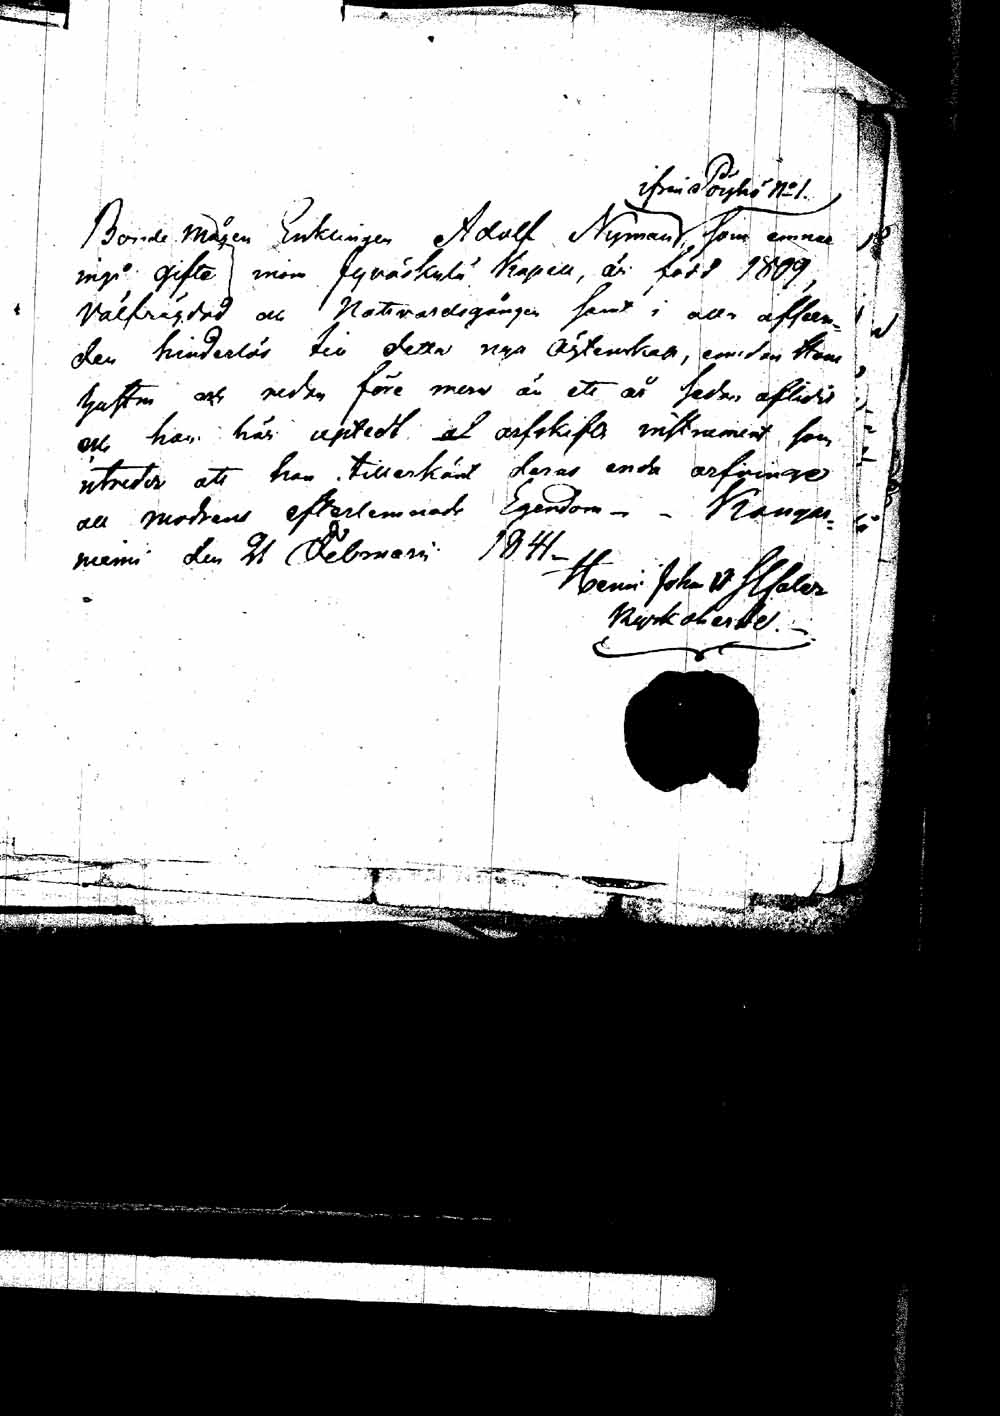 ifrån Pöyhö No 1.
Bonde mågen Enklingen Adolf Nyman, som ämnar
ingå gifte inom Jyväskylä Kapell, är född 1809,
Välfräjdad och Nattvardsgången samt i allt afseen-
den hinderlös till detta nya Ägtenskap, emedan
hustru redan före mera än ett år sedan aflidit
och han här uptedt et arfskiftes instrument som
utreder att han tillerkänt deras enda arfvinge
all modrens efterlemnade Egendom - - Kangas-
niemi den 21 Februarii 1841 -
Henric Johan
Kyrkoherde.